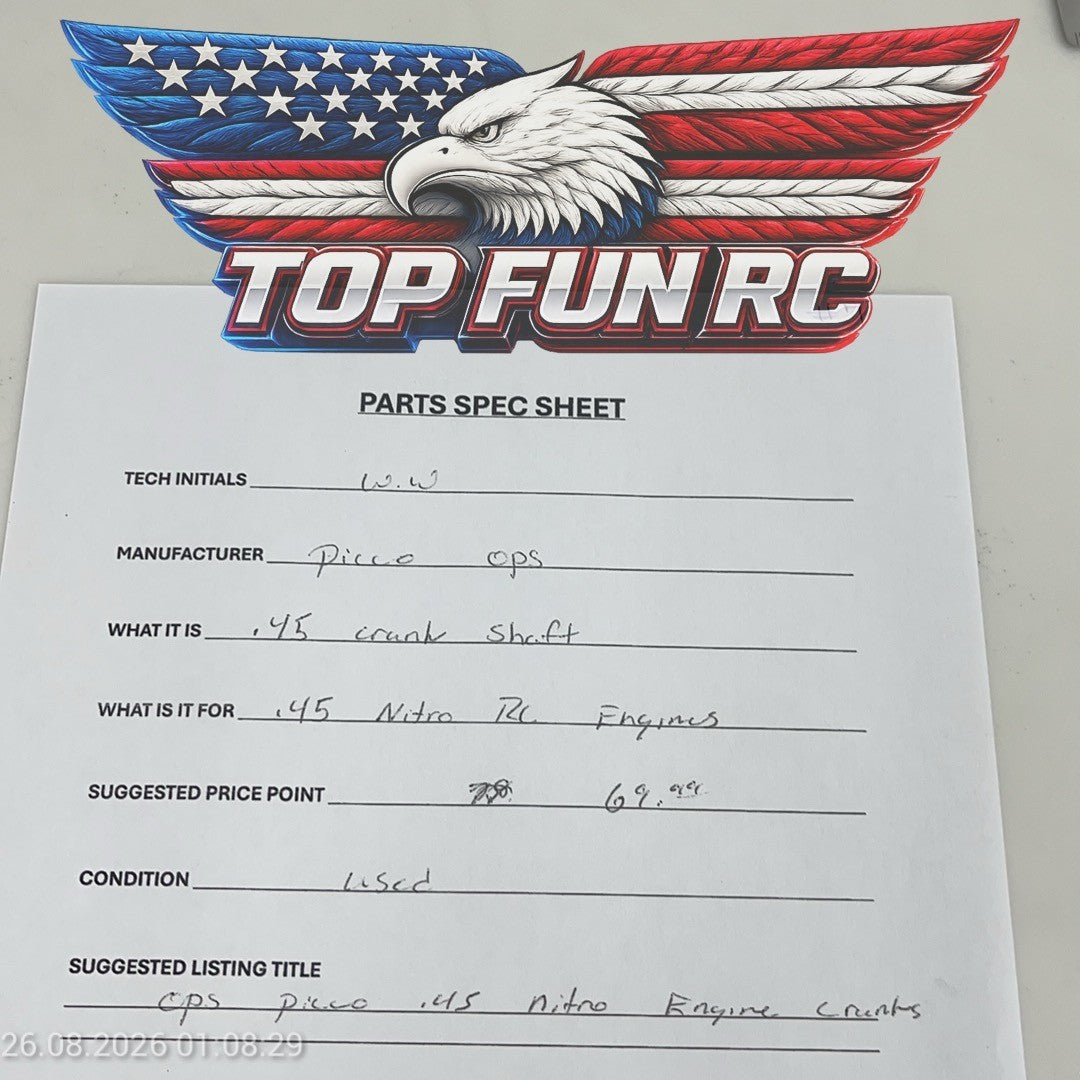 TOP FUN RC
PARTS SPEC SHEET
TECH INITIALS W.W
MANUFACTURER Picco ops
WHAT IT IS .45 crank shaft
WHAT IS IT FOR .45 Nitro RC Engines
SUGGESTED PRICE POINT 69.99
CONDITION used
SUGGESTED LISTING TITLE
ops Picco .45 nitro Engine cranks
26.08.2026 01:08:29